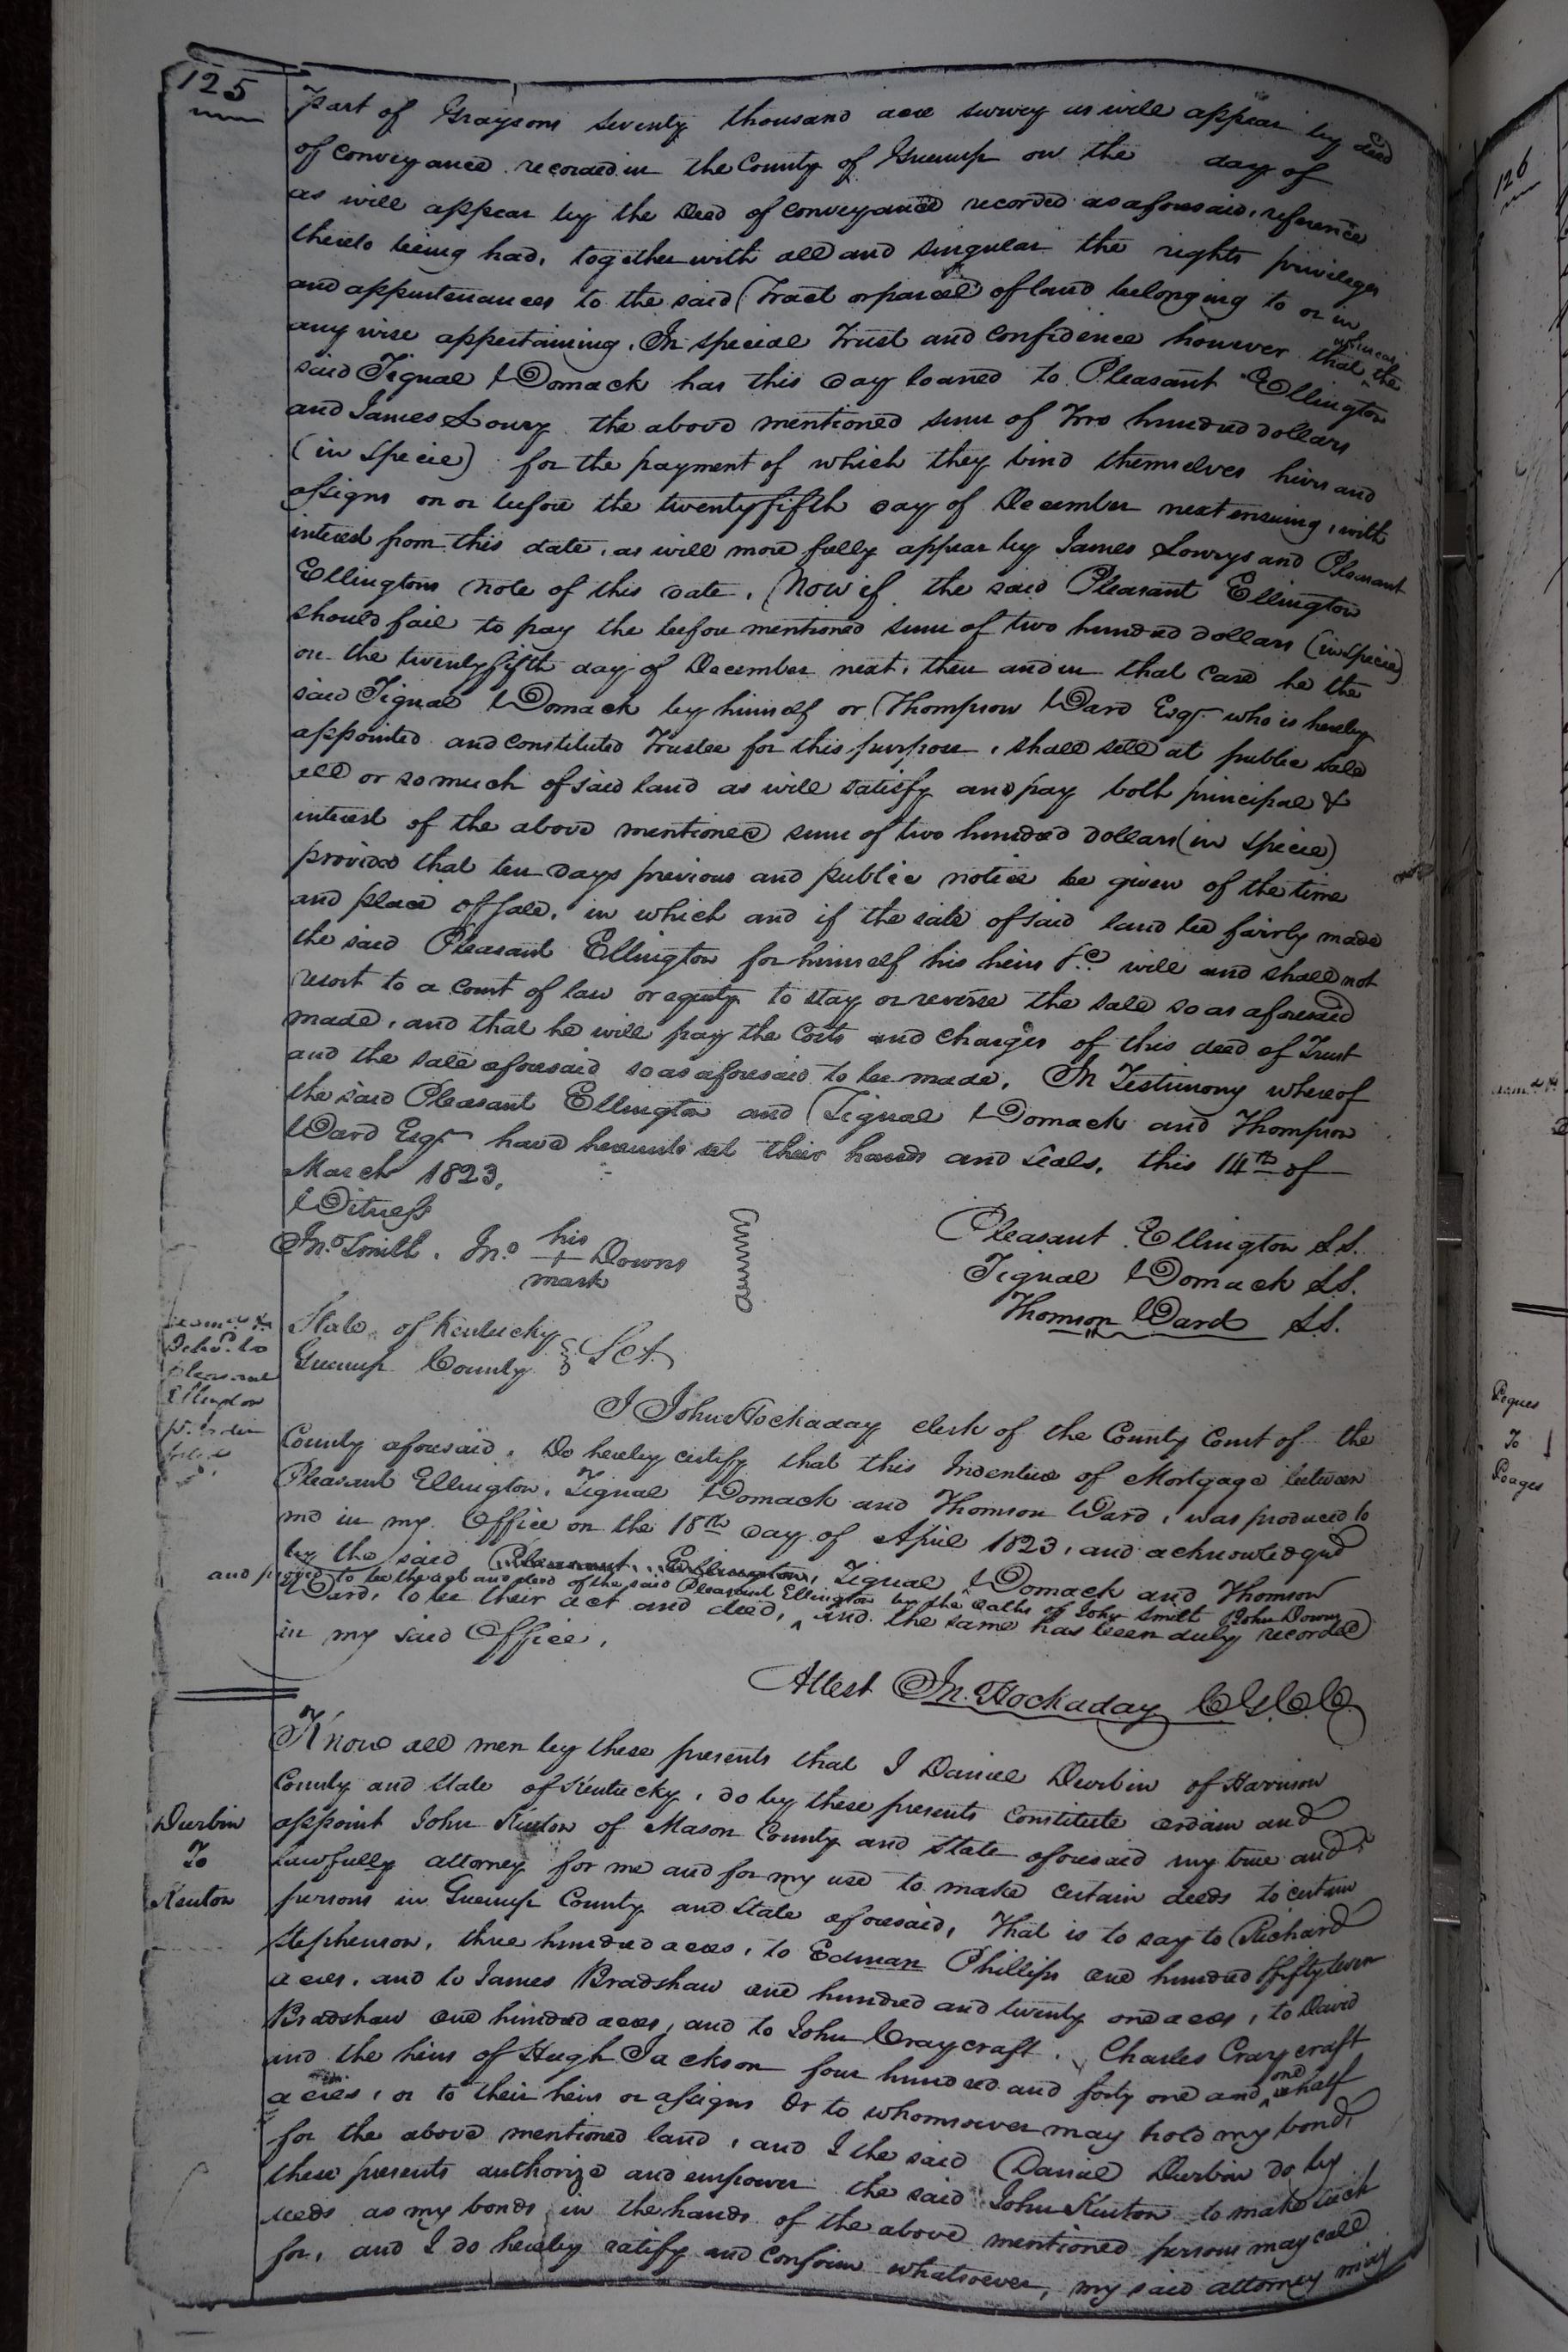 125
part of Graysons seventy thousand acre survey as will appear by deed
of conveyance recorded in the County of Greenup on the day of
as will appear by the Deed of conveyance recorded as aforesaid, reference
thereto being had, together with all and singular the rights privileges
and appurtenances to the said Tract or parcel of land belonging to or in
any wise appertaining. In special Trust and confidence however that whereas the
said Tignal Womack has this day loaned to Pleasant Ellington
and James Lowry the above mentioned sum of Two hundred dollars
(in specie) for the payment of which they bind themselves heirs and
assigns on or before the twentyfifth day of December next ensuing, with
interest from this date, as will more fully appear by James Lowrys and Pleasant
Ellingtons note of this date. Now if the said Pleasant Ellington
should fail to pay the before mentioned sum of two hundred dollars (in specie)
on the twentyfifth day of December next, then and in that case he the
said Tignal Womack by himself or Thompson Ward Esqr. who is hereby
appointed and constituted Trustee for this purpose, shall sell at public sale
all or so much of said land as will satisfy and pay both principal &
interest of the above mentioned sum of two hundred dollars (in specie)
provided that ten days previous and public notice be given of the time
and place of sale, in which and if the sale of said land be fairly made
the said Pleasant Ellington for himself his heirs &c. will and shall not
resort to a court of law or equity to stay or reverse the sale so as aforesaid
made, and that he will pay the costs and charges of this deed of Trust
and the sale aforesaid so as aforesaid to be made. In Testimony whereof
the said Pleasant Ellington and Tignal Womack and Thompson
Ward Esqr have hereunto set their hands and seals, this 14th of
March 1823.
Witness
Jno Smith. Jno his + mark Downs
Pleasant Ellington L.S.
Tignal Womack L.S.
Thomson Ward L.S.
State of Kentucky
Greenup County } Sct.
Pleasant
Ellington
I John Hockaday clerk of the County Court of the
County aforesaid. Do hereby certify that this Indenture of Mortgage between
Pleasant Ellington, Tignal Womack and Thomson Ward, was produced to
me in my Office on the 18th day of April 1823, and acknowledged
by the said Pleasant Ellington, Tignal Womack and Thomson
and proved to be the act and deed of the said Pleasant Ellington by the oaths of John Smith & John Downs
Ward, to be their act and deed, ^ and the same has been duly recorded
in my said Office.
Attest Jn. Hockaday C.G.C.C.
Durbin
To
Kenton
Know all men by these presents that I Daniel Durbin of Harrison
County and State of Kentucky, do by these presents constitute ordain and
appoint John Kenton of Mason County and State aforesaid my true and
lawfully attorney for me and for my use to make certain deeds to certain
persons in Greenup County and State aforesaid, That is to say to Richard
Stephenson, three hundred acres, to Edman Phillips one hundred & fifty seven
acres, and to James Bradshaw one hundred and twenty one acres, to David
Bradshaw one hundred acres, and to John Craycraft, Charles Craycraft
and the heirs of Hugh Jackson four hundred and forty one and one half
acres, or to their heirs or assigns Or to whomsoever may hold my bonds
for the above mentioned land, and I the said Daniel Durbin do by
these presents authorize and empower the said John Kenton to make such
deeds as my bonds in the hands of the above mentioned persons may call
for, and I do hereby ratify and confirm whatsoever, my said attorney may
126
Pogues
To
Poages